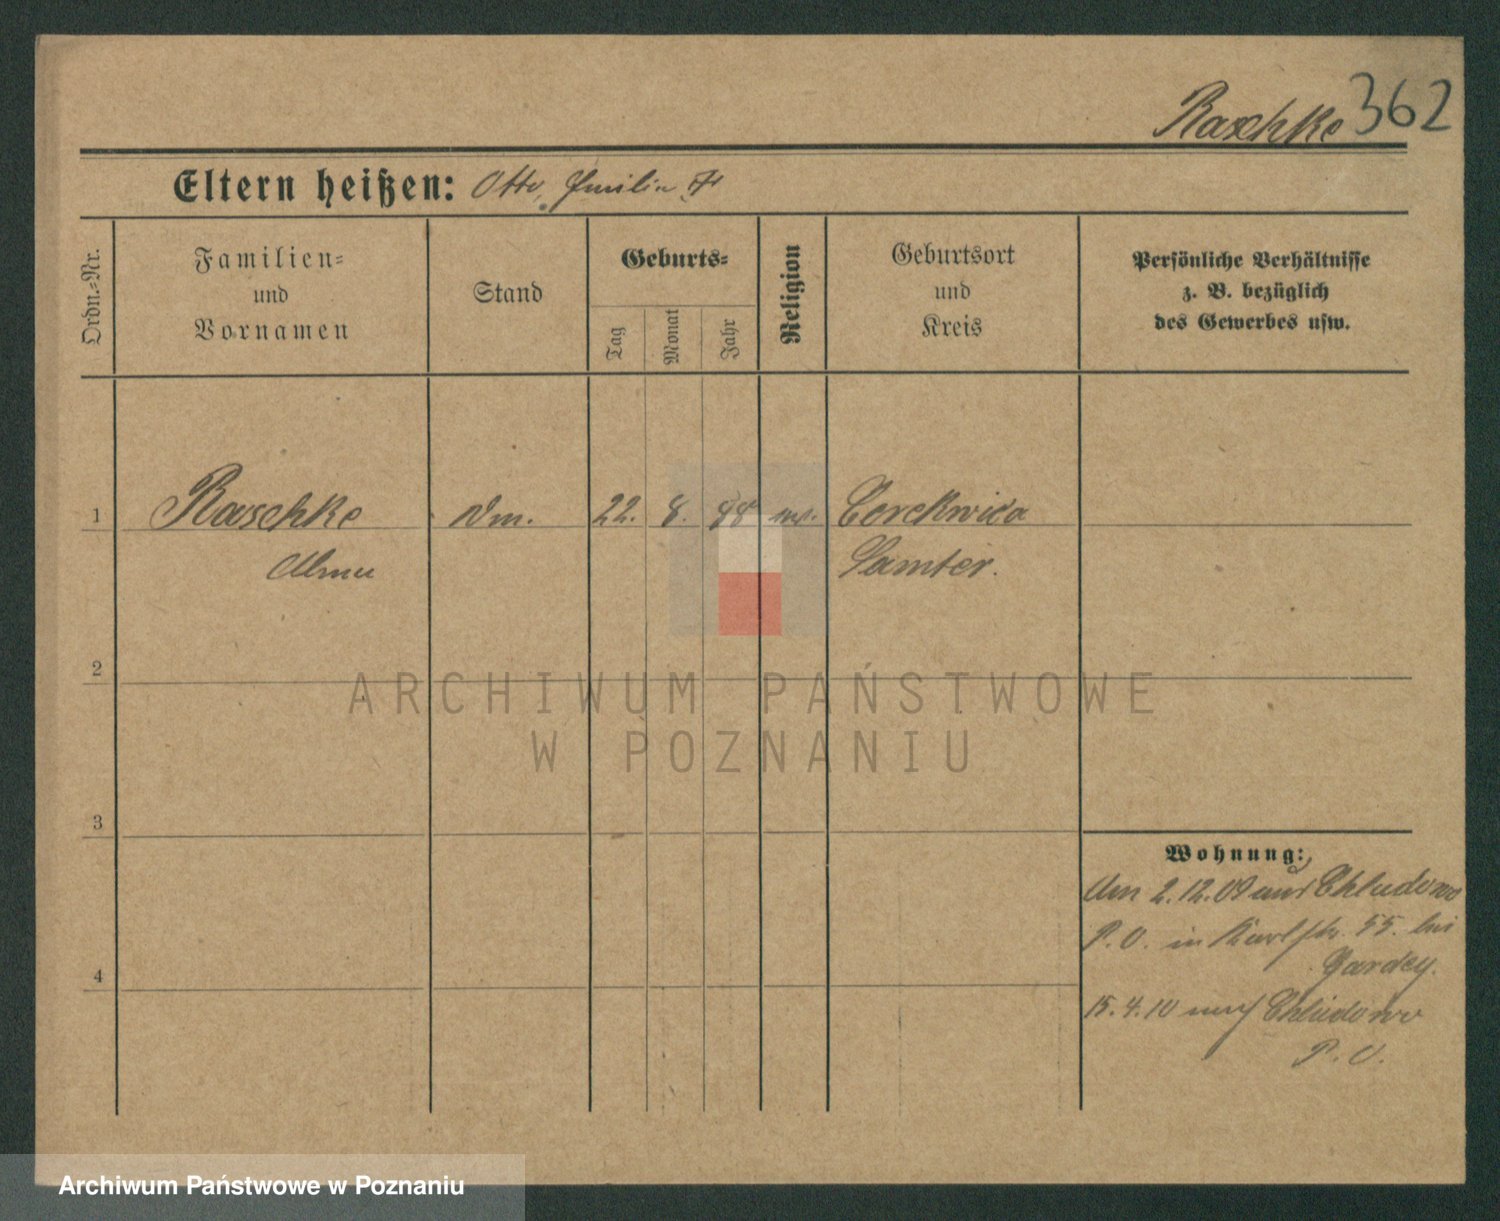 Raschke 362
Eltern heißen: Otto, Emilie
Ordn.-Nr.
Familien-
und
Vornamen
Stand
Geburts-
Tag
Monat
Jahr
Religion
Geburtsort
und
Kreis
Persönliche Verhältnisse
z. B. bezüglich
des Gewerbes usw.
1 Raschke 22. 8. 88 Cerekwica
Alma Samter.
2
ARCHIWUM PAŃSTWOWE
W POZNANIU
3
Wohnung:
Am 2.12.09 aus Chludowo
P. O. in Karlstr. 55. bei
4
15.4.10 nach Chludowo
P. O.
Archiwum Państwowe w Poznaniu